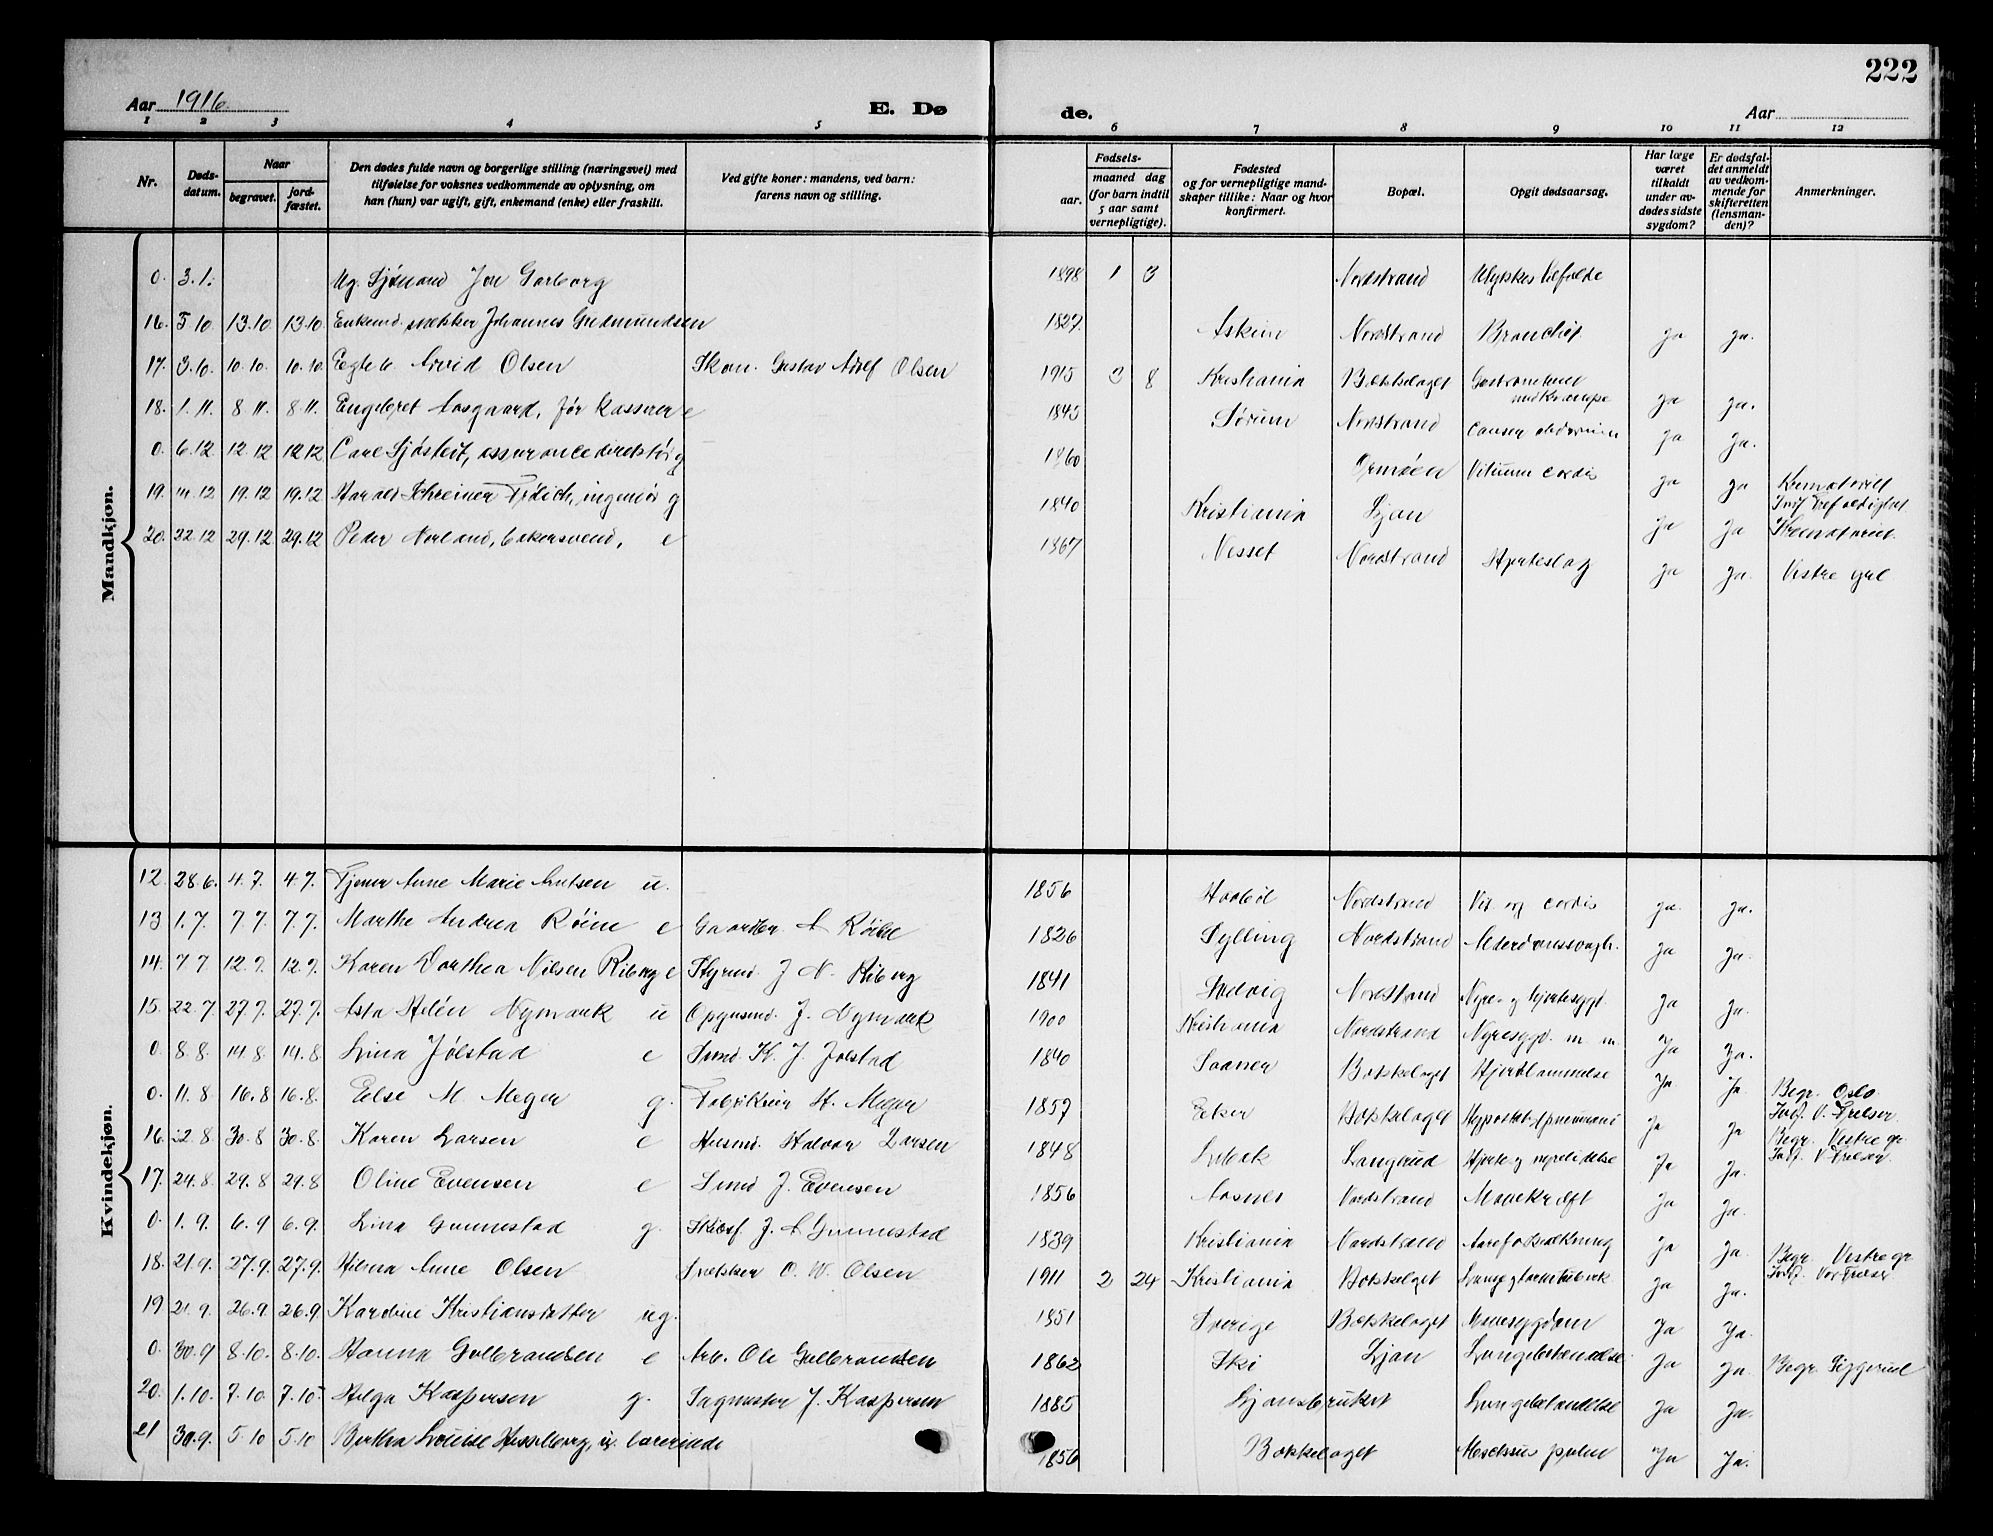 222
Aar 1916. E. Dø de. Aar
1 2 3 4 5 6 7 8 9 10 11 12
Nr.
Døds-
datum.
Naar
begravet.
jord-
fæstet.
Den dødes fulde navn og borgerlige stilling (næringsvei) med
tilføielse for voksnes vedkommende av oplysning, om
han (hun) var ugift, gift, enkemand (enke) eller fraskilt.
Ved gifte koner: mandens, ved barn:
farens navn og stilling.
Fødsels-
aar.
maaned dag
(for barn indtil
5 aar samt
vernepligtige).
Fødested
og for vernepligtige mand-
skaper tillike: Naar og hvor
konfirmert.
Bopæl.
Opgit dødsaarsag.
Har læge
været
tilkaldt
under av-
dødes sidste
sygdom?
Er dødsfal-
det anmeldt
av vedkom-
mende for
skifteretten
(lensman-
den)?
Anmerkninger.
Mandkjøn.
0. 3.1. Ug. Sjømand Jon Garborg 1898 1 3 Nordstrand Ulykkestilfælde
16. 5.10 13.10 13.10 Enkemd. snekker Johannes Gudmundsen 1827 Askim Nordstrand Bronchit ja ja.
17. 3.10. 10.10. 10.10. Egteb. Arvid Olsen Skom. Gustav Adolf Olsen 1915 3 8 Kristiania Bækkelaget ja ja.
18. 1.11. 8.11. 8.11. Engebret Aasgaard, før kasserer e 1845 Sørum Nordstrand ja ja.
0. 6.12 12.12 12.12 Carl Sjøstedt, assurancedirektør g 1860 Ormøen Vitium cordis ja ja Krematoriet
19. 14.12 19.12 19.12 Harald Schreiner Frølich, ingeniør g 1840 Kristiania Ljan ja ja Krematoriet.
20. 22.12 29.12 29.12 Peder Norland, bakersvend, e 1867 Nesset Nordstrand Hjerteslag ja ja. Vestre grl.
Kvindekjøn.
12. 28.6. 4.7. 4.7. Tjener Anne Marie Knutsen u. 1856 Haabøl Nordstrand Vit. org cordis ja. ja.
13 1.7. 7.7. 7.7. Marthe Andrea Røine e Gaardbr. A Røine 1826 Sylling Nordstrand Alderdomssvagh. ja ja.
14. 7.7 12.7. 12.7. Karen Dorthea Nilsen Riberg e Styrmd. J N. Riberg 1841 Nordstrand Nyre- og hjertesygd. ja ja.
15. 22.7. 27.7. 27.7. Asta Helén Nymark u Opsynsmd. J. Nymark 1900 Kristiania Nordstrand Nyresygd. m. m. Ja Ja.
0. 8.8. 14.8. 14.8. Lina Jølstad e Smd K. J. Jølstad 1840 Bækkelaget Hjertelammelse Ja Ja Begr. Oslo.
0. 11.8. 16.8 16.8. Else M. Meyer g. Fabrikeier H. Meyer 1857 Eker Bækkelaget Ja Ja
16. 22.8. 30.8 30.8. Karen Larsen e Husmd. Halvor Larsen 1848 Langerud Hjerte og nyrelidelse Ja Ja.
17. 24.8. 29.8 29.8 Oline Evensen e Smd J. Evensen 1856 Aasnes Nordstrand Mavekræft Ja Ja.
0. 1.9. 6.9 6.9. Lina Gunnestad g. J. A Gunnestad 1839 Kristiania Nordstrand Aareforkalkning Ja Ja. Begr. Vestre gr.
18. 21.9. 27.9. 27.9. Hilma Anne Olsen Snekker O. W. Olsen 1911 2 24 Kristiania Bækkelaget Ja Ja.
19 21.9. 26.9. 26.9 Karoline Kristiansdatter ug. 1851 Sverige Bækkelaget Mavesygdom Ja Ja.
0. 30.9 8.10. 8.10. Hanna Gulbrandsen e Arb. Ole Gulbrandsen 1862 Ski Ljan Lungebetændelse Ja Ja Begr. Siggerud
20. 1.10. 7.10 7.10 Helga Kaspersen g. Sagmester J. Kaspersen 1885 Ljansbruket Lungebetændelse Ja Ja.
21 30.9. 5.10 5.10 Berthe Louise Hesselberg, u. lærerinde 1856 Bækkelaget Ja Ja.